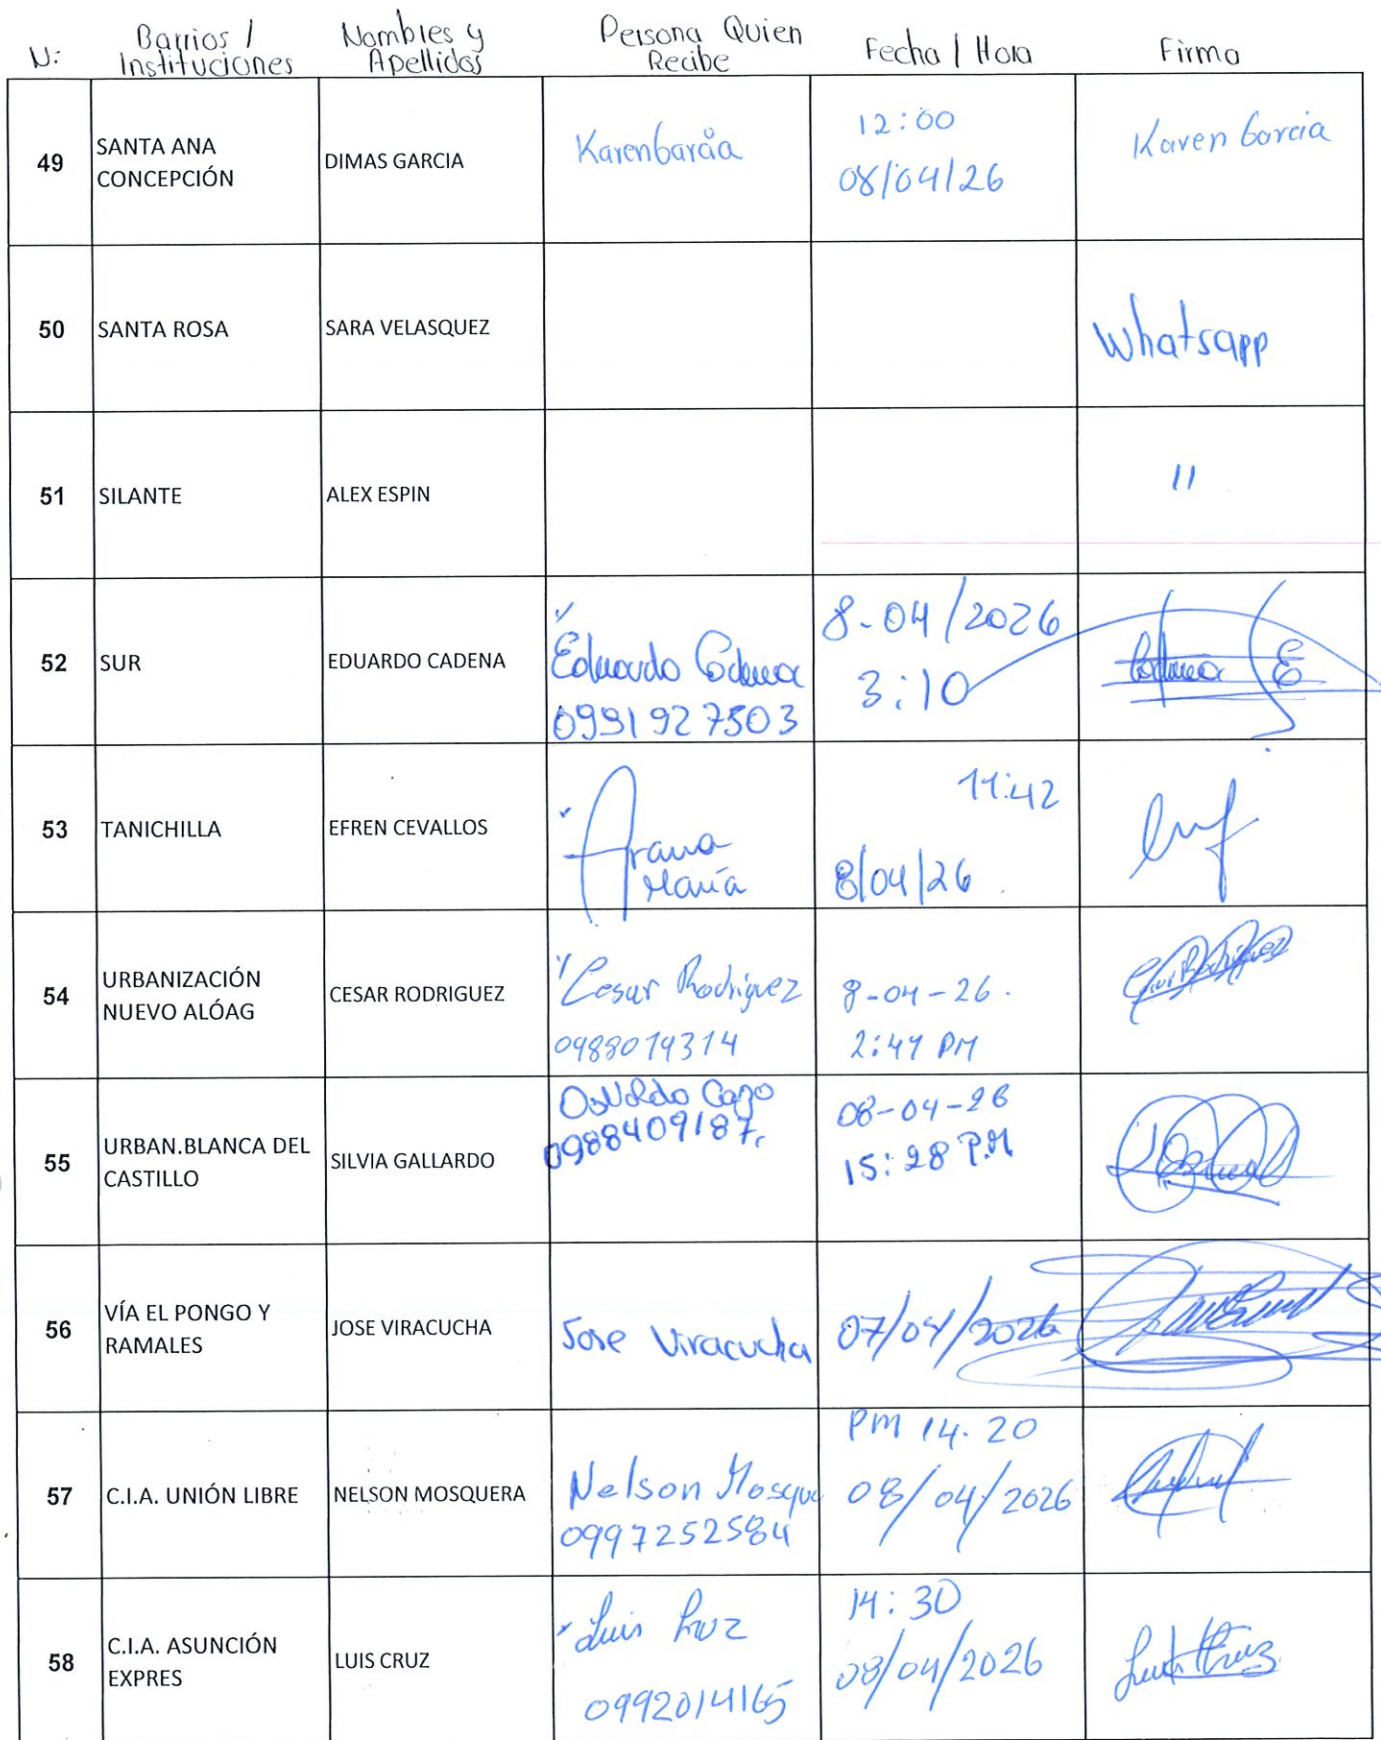 N:
Barrios /
Instituciones
Nombres y
Apellidos
Persona Quien
Recibe
Fecha / Hora
Firma
49
SANTA ANA
CONCEPCIÓN
DIMAS GARCIA
Karen Garcia
12:00
08/04/26
Karen Garcia
50
SANTA ROSA
SARA VELASQUEZ
Whatsapp
51
SILANTE
ALEX ESPIN
"
52
SUR
EDUARDO CADENA
Eduardo Cadena
0991927503
8-04/2026
3:10
Cadena E
53
TANICHILLA
EFREN CEVALLOS
Arana
María
11:42
8/04/26
54
URBANIZACIÓN
NUEVO ALÓAG
CESAR RODRIGUEZ
Cesar Rodriguez
0988019314
8-04-26.
2:47 PM
55
URBAN.BLANCA DEL
CASTILLO
SILVIA GALLARDO
Osvaldo
0988409187
08-04-26
15:28 P.M
56
VÍA EL PONGO Y
RAMALES
JOSE VIRACUCHA
Jose Viracucha
07/04/2026
57
C.I.A. UNIÓN LIBRE
NELSON MOSQUERA
Nelson Mosque
0997252584
PM 14.20
08/04/2026
58
C.I.A. ASUNCIÓN
EXPRES
LUIS CRUZ
Luis Cruz
0992014165
14:30
08/04/2026
Luis Cruz